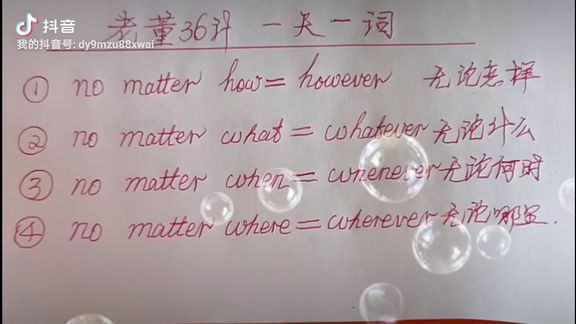 抖音
我的抖音号: dy9mzu88xwai
老董36计 一天一词
① no matter how = however 无论怎样
② no matter what = whatever 无论什么
③ no matter when = whenever 无论何时
④ no matter where = wherever 无论哪里.